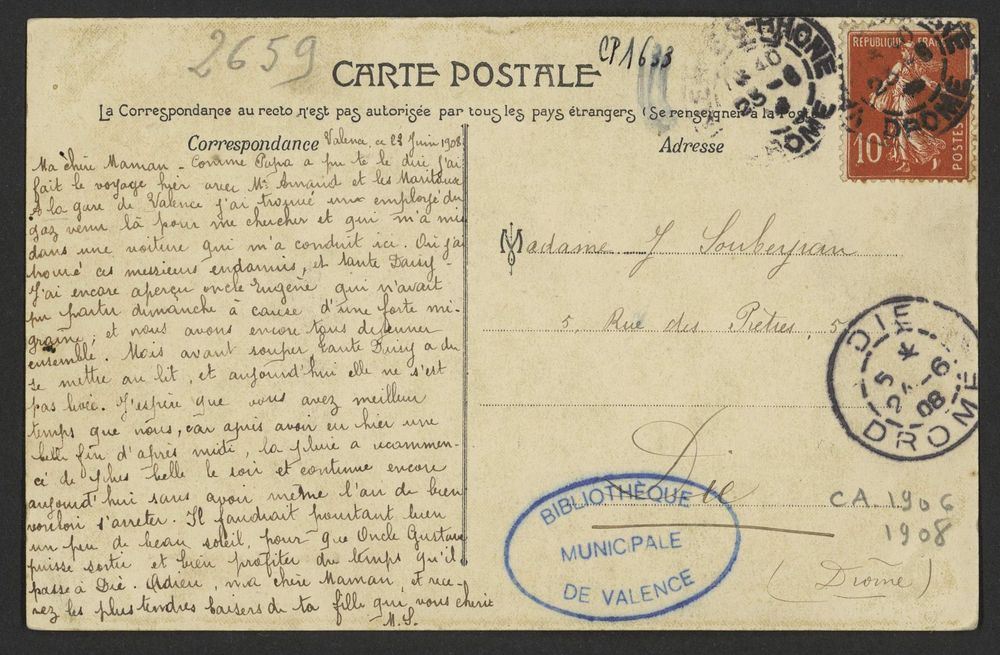 2659
CP1633
CARTE POSTALE
La Correspondance au recto n'est pas autorisée par tous les pays étrangers (Se renseigner à la Poste)
Correspondance
Valence, ce 23 Juin 1908.
Ma chère Maman. Comme Papa a pu te le dire j'ai
fait le voyage hier avec Mr Arnaud et les
A la gare de Valence j'ai trouvé un employé du
gaz venu là pour me chercher et qui m'a mis
dans une voiture qui m'a conduit ici. Où j'ai
trouvé ces messieurs endormis, et tante Daisy.
J'ai encore aperçu oncle Eugène qui n'avait
pu partir dimanche à cause d'une forte mi-
graine, et nous avons encore tous dejeuner
ensemble. Mais avant souper tante Daisy a du
se mettre au lit, et aujourd'hui elle ne s'est
pas levée. J'espère que vous avez meilleur
temps que nous, car après avoir eu hier une
belle fin d'après midi, la pluie a recommen-
cé de plus belle le soir et continue encore
aujourd'hui sans avoir même l'air de bien
vouloir s'arreter. Il faudrait pourtant bien
un peu de beau soleil, pour que Oncle Gustave
puisse sortir et bien profiter du temps qu'il
passe à Die. Adieu, ma chère Maman et rece-
vez les plus tendres baisers de ta fille qui vous chérit
M.S.
Adresse
Madame J Soubeyran
5, Rue des Prêtres, 5
Die
(Drôme)
REPUBLIQUE FRANÇAISE
10
POSTES
RHONE
DROME
DIE
5
24 -6
08
DROME
BIBLIOTHÈQUE
MUNICIPALE
DE VALENCE
CA.1906
1908